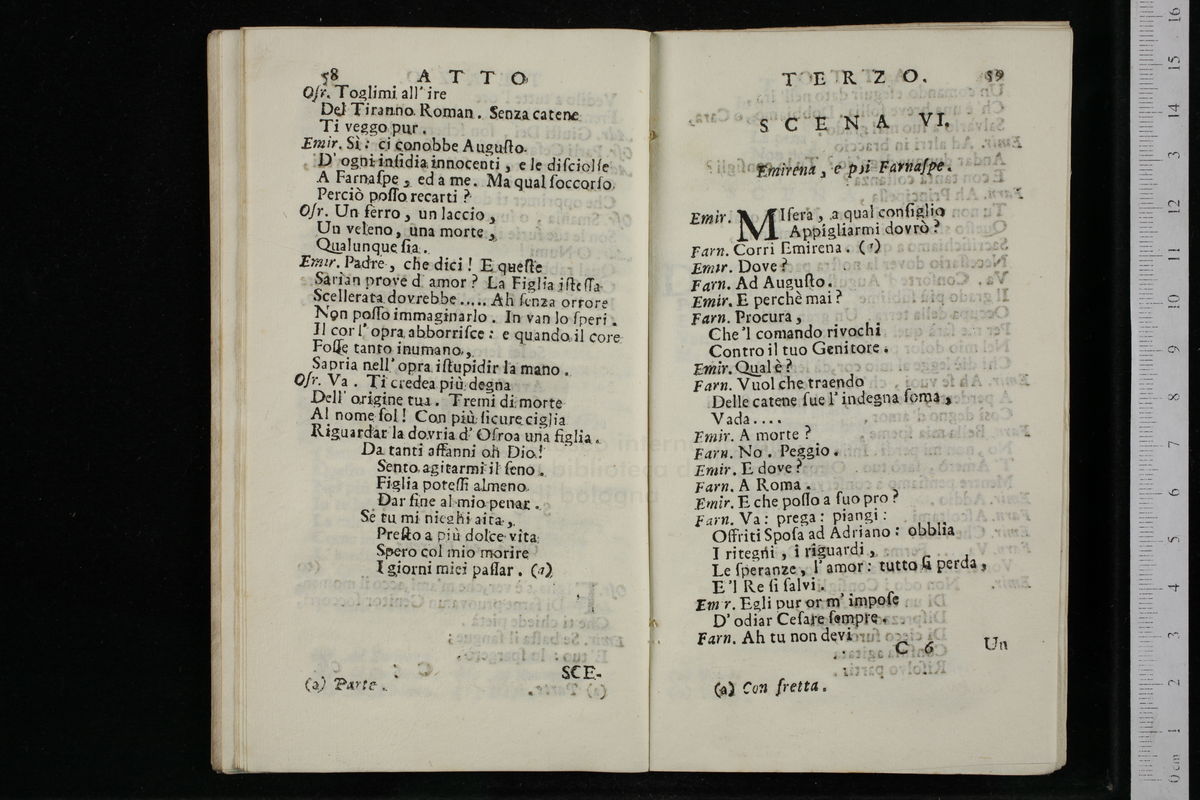 58 ATTO
Oſr. Toglimi all' ire
Del Tiranno Roman. Senza catene
Ti veggo pur.
Emir. Sì: ci conobbe Auguſto
D' ogni inſidia innocenti, e le diſciolſe
A Farnaſpe, ed a me. Ma qual ſoccorſo
Perciò poſſo recarti?
Oſr. Un ferro, un laccio,
Un veleno, una morte,
Qualunque ſia.
Emir. Padre, che dici! E queſte
Sarian prove d' amor? La Figlia iſteſſa
Scellerata dovrebbe..... Ah ſenza orrore
Non poſſo immaginarlo. In van lo ſperi.
Il cor l' opra abborriſce: e quando il core
Foſſe tanto inumano,
Sapria nell' opra iſtupidir la mano.
Oſr. Va. Ti credea più degna
Dell' origine tua. Tremi di morte
Al nome ſol! Con più ſicure ciglia
Riguardar la dovria d' Oſroa una figlia.
Da tanti affanni oh Dio!
Sento agitarmi il ſeno.
Figlia poteſſi almeno
Dar fine al mio penar.
Se tu mi nieghi aita,
Preſto a più dolce vita
Spero col mio morire
I giorni miei paſſar. (a)
SCE-
(a) Parte.
TERZO. 59
SCENA VI.
Emirena, e poi Farnaſpe.
Emir. Miſera, a qual conſiglio
Appigliarmi dovrò?
Farn. Corri Emirena. (a)
Emir. Dove?
Farn. Ad Auguſto.
Emir. E perchè mai?
Farn. Procura,
Che 'l comando rivochi
Contro il tuo Genitore.
Emir. Qual è?
Farn. Vuol che traendo
Delle catene ſue l' indegna ſoma,
Vada....
Emir. A morte?
Farn. No. Peggio.
Emir. E dove?
Farn. A Roma.
Emir. E che poſſo a ſuo pro?
Farn. Va: prega: piangi:
Offriti Spoſa ad Adriano: obblia
I ritegni, i riguardi,
Le ſperanze, l' amor: tutto ſi perda,
E 'l Re ſi ſalvi.
Em r. Egli pur or m' impoſe
D' odiar Ceſare ſempre.
Farn. Ah tu non devi
C 6 Un
(a) Con fretta.